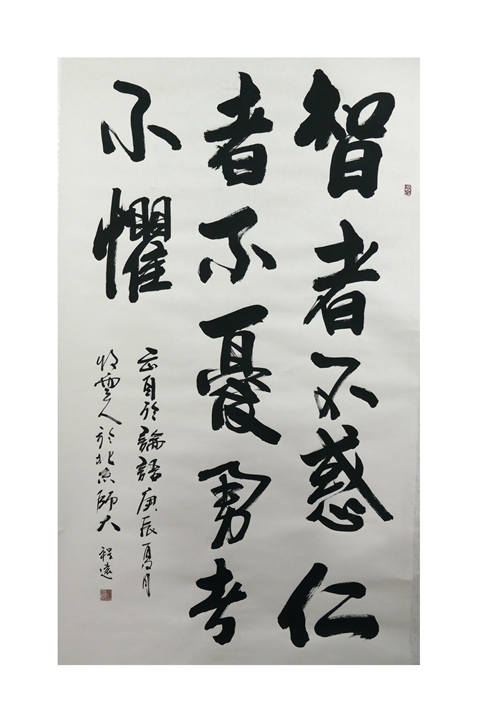 智者不惑仁
者不憂勇者
不懼
云自於論語庚辰夏月
於北京師大 程遠